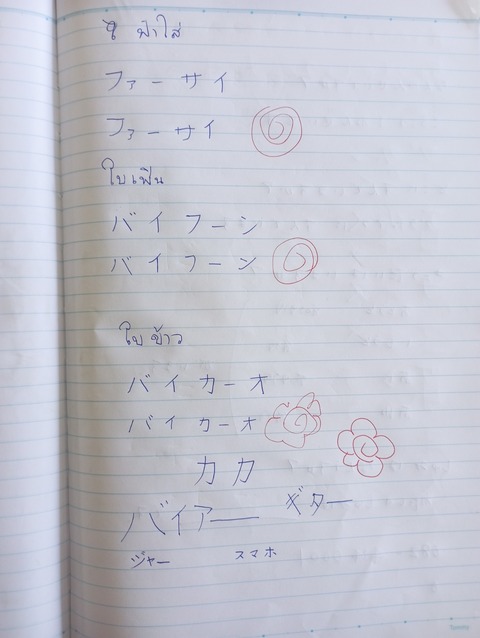 ฟ้าใส
ファーサイ
ファーサイ
ใบเฟิน
バイフーン
バイフーン
ใบข้าว
バイカーオ
バイカーオ
カカ
バイアー ギター
ジャー スマホ